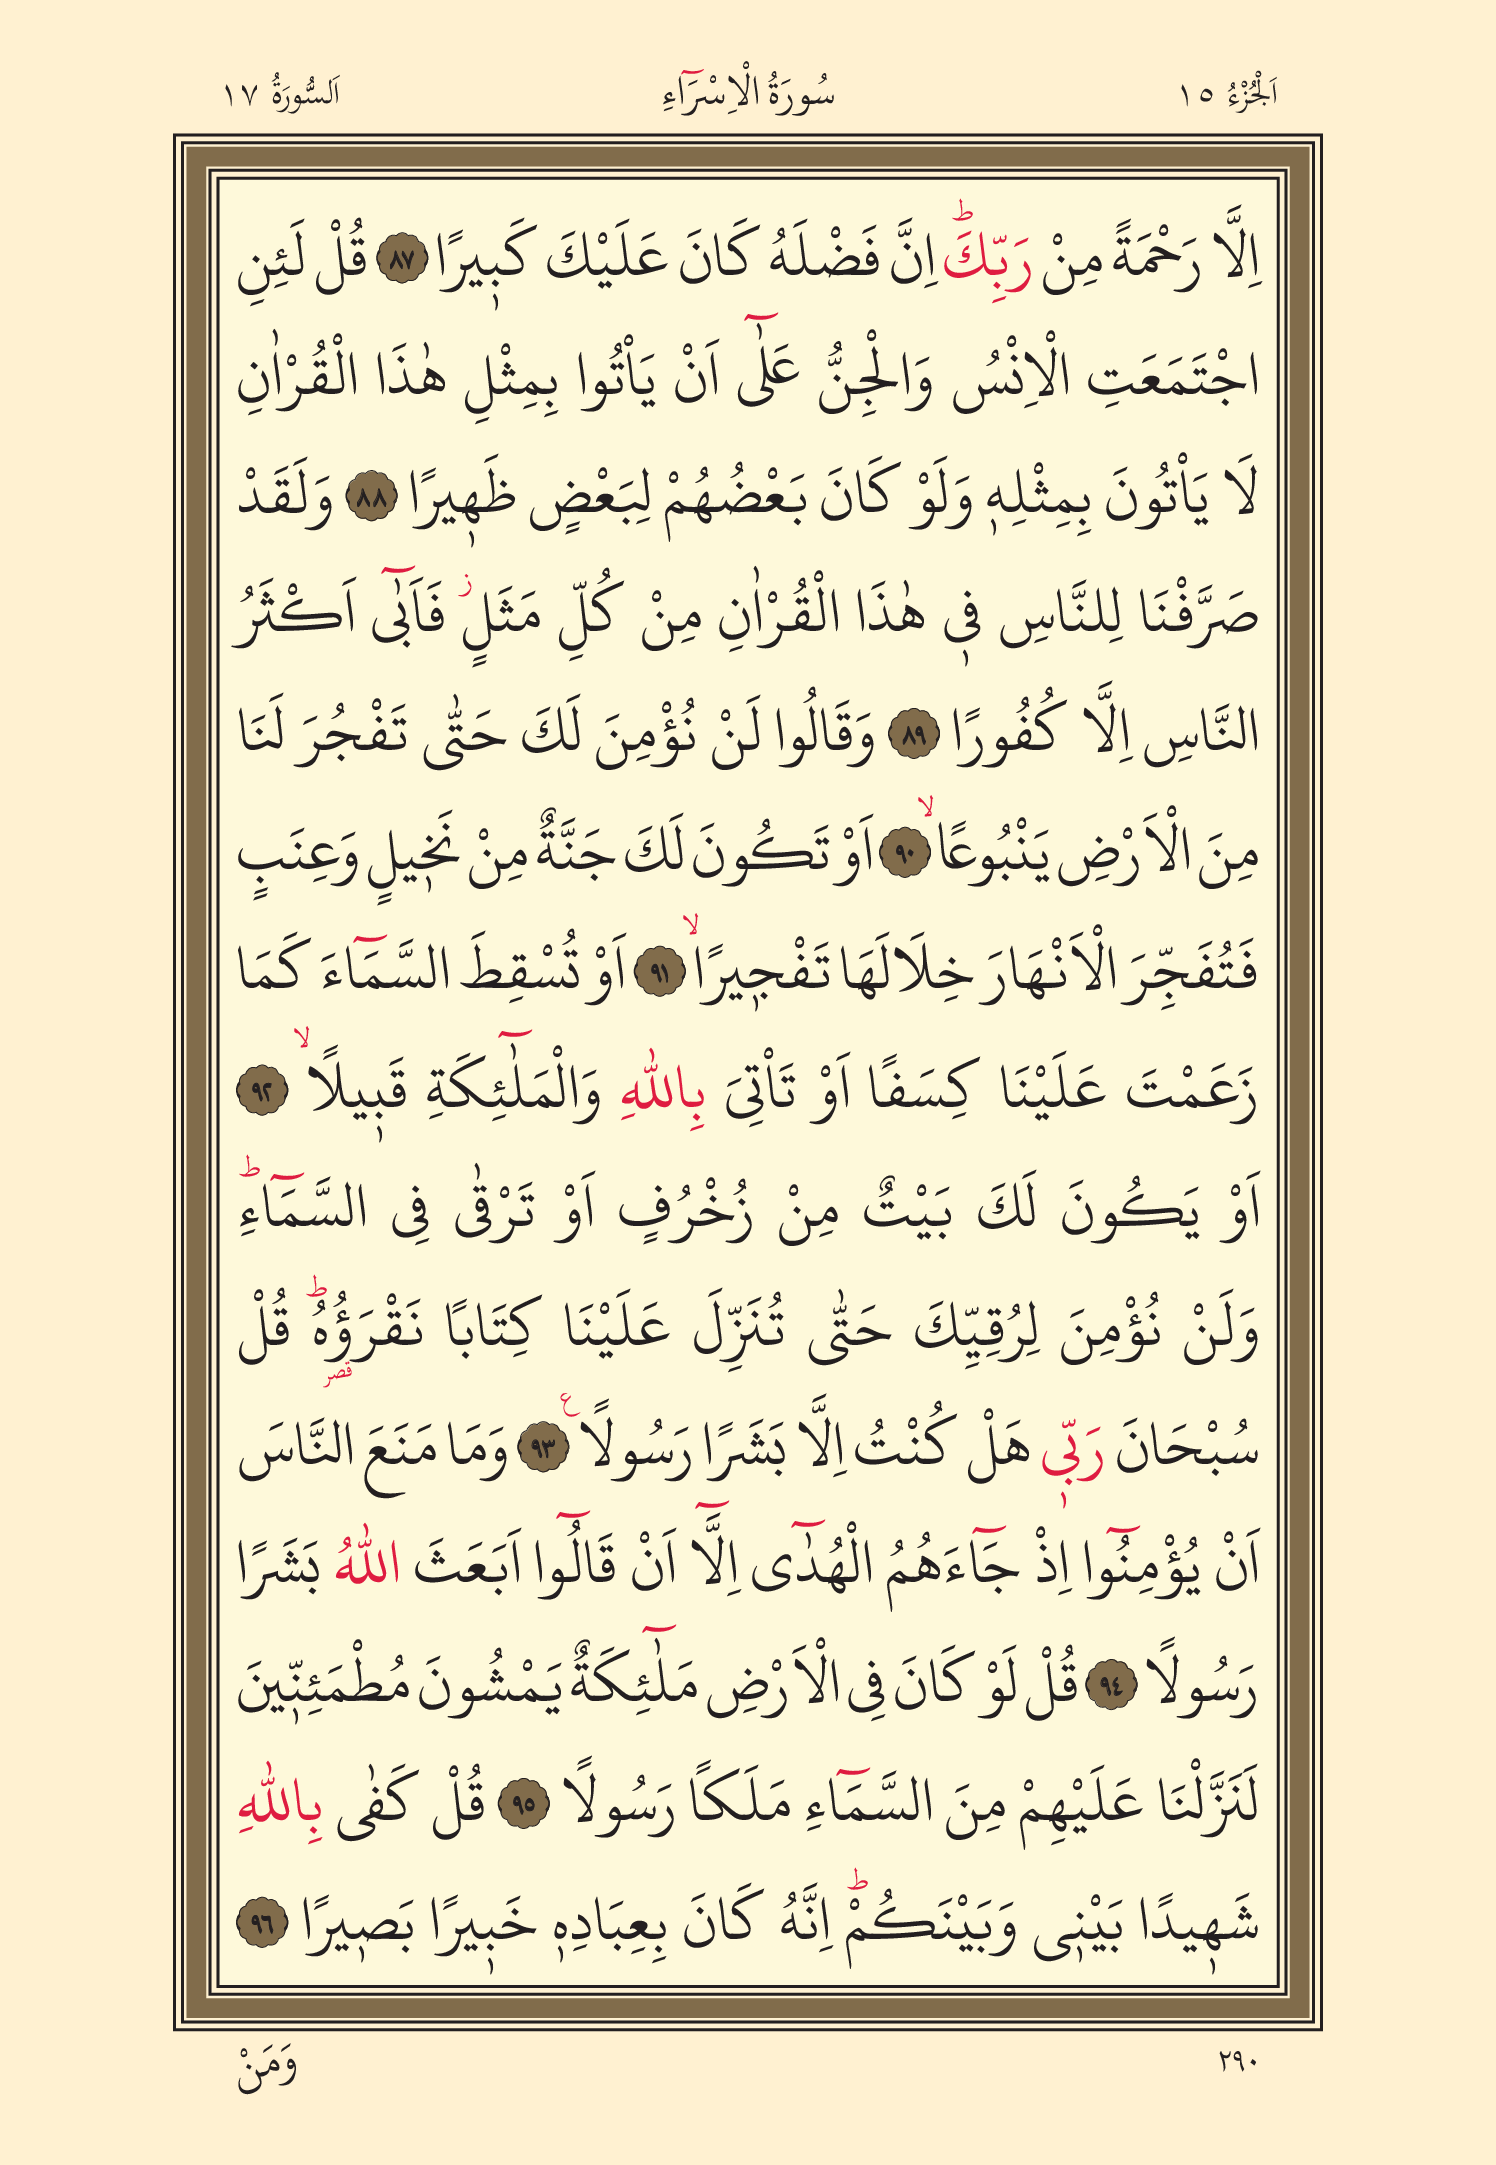 اَلْجُزْءُ ١٥ سُورَةُ الْاِسْرَٓاءِ اَلسُّورَةُ ١٧
اِلَّا رَحْمَةً مِنْ رَبِّكَۜ اِنَّ فَضْلَهُ كَانَ عَلَيْكَ كَبٖيرًا ﴿٨٧﴾ قُلْ لَئِنِ
اجْتَمَعَتِ الْاِنْسُ وَالْجِنُّ عَلٰٓى اَنْ يَاْتُوا بِمِثْلِ هٰذَا الْقُرْاٰنِ
لَا يَاْتُونَ بِمِثْلِهٖ وَلَوْ كَانَ بَعْضُهُمْ لِبَعْضٍ ظَهٖيرًا ﴿٨٨﴾ وَلَقَدْ
صَرَّفْنَا لِلنَّاسِ فٖى هٰذَا الْقُرْاٰنِ مِنْ كُلِّ مَثَلٍؗ فَاَبٰٓى اَكْثَرُ
النَّاسِ اِلَّا كُفُورًا ﴿٨٩﴾ وَقَالُوا لَنْ نُؤْمِنَ لَكَ حَتّٰى تَفْجُرَ لَنَا
مِنَ الْاَرْضِ يَنْبُوعًاۙ ﴿٩٠﴾ اَوْ تَكُونَ لَكَ جَنَّةٌ مِنْ نَخٖيلٍ وَعِنَبٍ
فَتُفَجِّرَ الْاَنْهَارَ خِلَالَهَا تَفْجٖيرًاۙ ﴿٩١﴾ اَوْ تُسْقِطَ السَّمَٓاءَ كَمَا
زَعَمْتَ عَلَيْنَا كِسَفًا اَوْ تَاْتِىَ بِاللّٰهِ وَالْمَلٰٓئِكَةِ قَبٖيلًاۙ ﴿٩٢﴾
اَوْ يَكُونَ لَكَ بَيْتٌ مِنْ زُخْرُفٍ اَوْ تَرْقٰى فِى السَّمَٓاءِۜ
وَلَنْ نُؤْمِنَ لِرُقِيِّكَ حَتّٰى تُنَزِّلَ عَلَيْنَا كِتَابًا نَقْرَؤُ۬هُۜ قُلْ
قصر
سُبْحَانَ رَبّٖى هَلْ كُنْتُ اِلَّا بَشَرًا رَسُولًا ع ﴿٩٣﴾ وَمَا مَنَعَ النَّاسَ
اَنْ يُؤْمِنُٓوا اِذْ جَٓاءَهُمُ الْهُدٰٓى اِلَّٓا اَنْ قَالُٓوا اَبَعَثَ اللّٰهُ بَشَرًا
رَسُولًا ﴿٩٤﴾ قُلْ لَوْ كَانَ فِى الْاَرْضِ مَلٰٓئِكَةٌ يَمْشُونَ مُطْمَئِنّٖينَ
لَنَزَّلْنَا عَلَيْهِمْ مِنَ السَّمَٓاءِ مَلَكًا رَسُولًا ﴿٩٥﴾ قُلْ كَفٰى بِاللّٰهِ
شَهٖيدًا بَيْنٖى وَبَيْنَكُمْۜ اِنَّهُ كَانَ بِعِبَادِهٖ خَبٖيرًا بَصٖيرًا ﴿٩٦﴾
٢٩٠ وَمَنْ